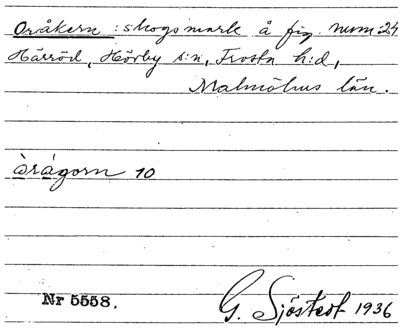 Oråkern : skogsmark å fig. num: 24
Härröd, Hörby s:n, Frosta h:d,
Malmöhus län.
òrágorn 10
Nr 5558.
G. Sjöstedt 1936